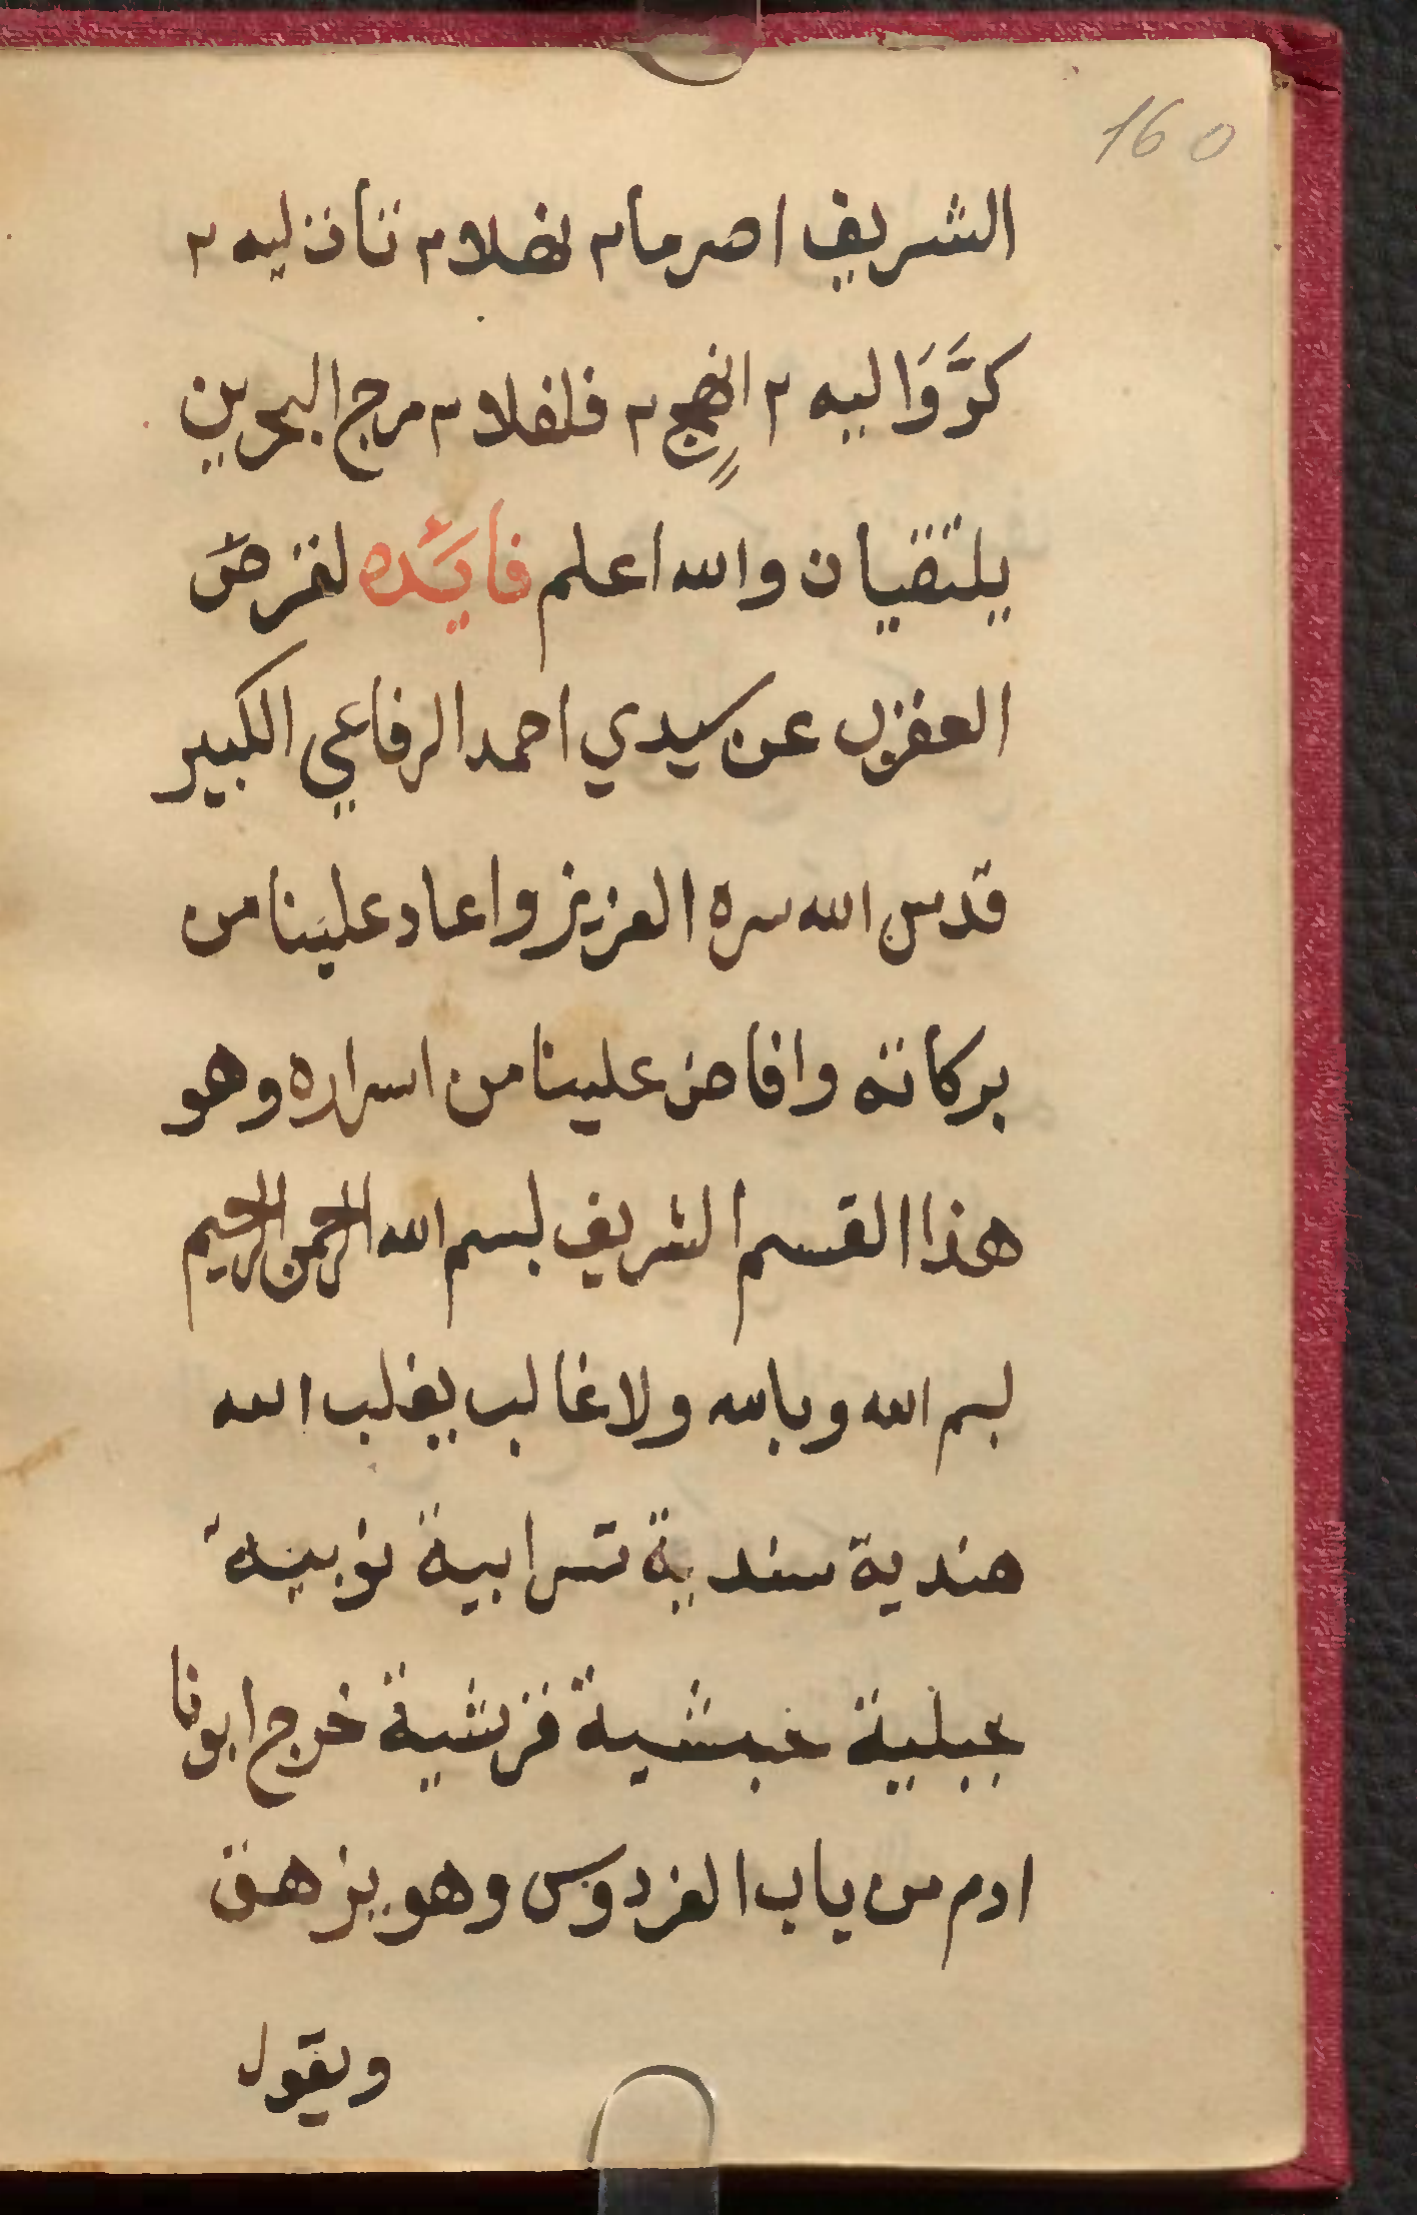 160
الشريف اصرما٢ نهلا٢ تاذليه ٢
كرَّوَاليه ٢ انهج ٢ فلفلا ٢ مرج البحرين
يلتقيان والله اعلم فايَده لقرصَ
العقرب عن سيدي احمد الرفاعي الكبير
قدس الله سره العزيز واعاد علينا من
بركاته وافاض علينا من اسراره وهو
هذا القسم الشريف بسم الله الرحمن الرحيم
بسم الله وبالله ولا غالب يغلب الله
هندية سندية ترابية نوبية
جبلية خبشية قرشية خرج ابونا
ادم من باب الفردوس وهو يزهق
ويقول